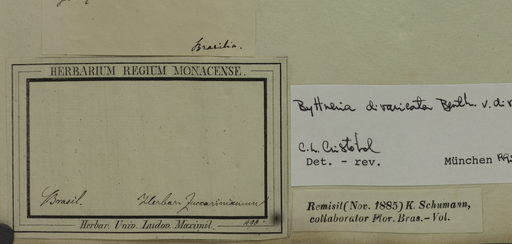 Brasilia.
HERBARIUM REGIUM MONACENSE.
Brasil. Herbar. Zuccarinianum
Herbar. Univ. Ludov. Maximil.
Byttneria divaricata Benth. v. div
C.L. Cristóbal
Det. - rev. München
Remisit (Nov. 1885) K. Schumann,
collaborator Flor. Bras. - Vol.